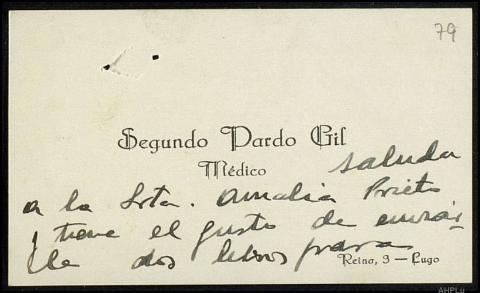 79
Segundo Pardo Gil
Médico
saluda
a la Srta. Amalia Prieto
y tiene el gusto de enviár-
le dos libros para
Reina, 9 — Lugo
AHPLu